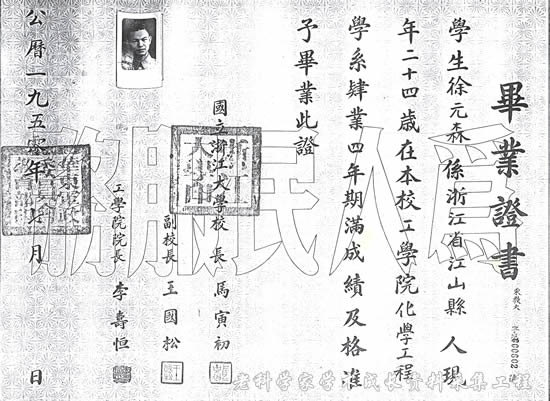 畢業證書
學生徐元森係浙江省江山縣人現
年二十四歲在本校工學院化學工程
學系肄業四年期滿成績及格准
予畢業此證
國立浙江大學校長馬寅初
副校長王國松
工學院院長李壽恒
公曆一九五零年七月 日
為人民服務
老科学家学术成长资料采集工程